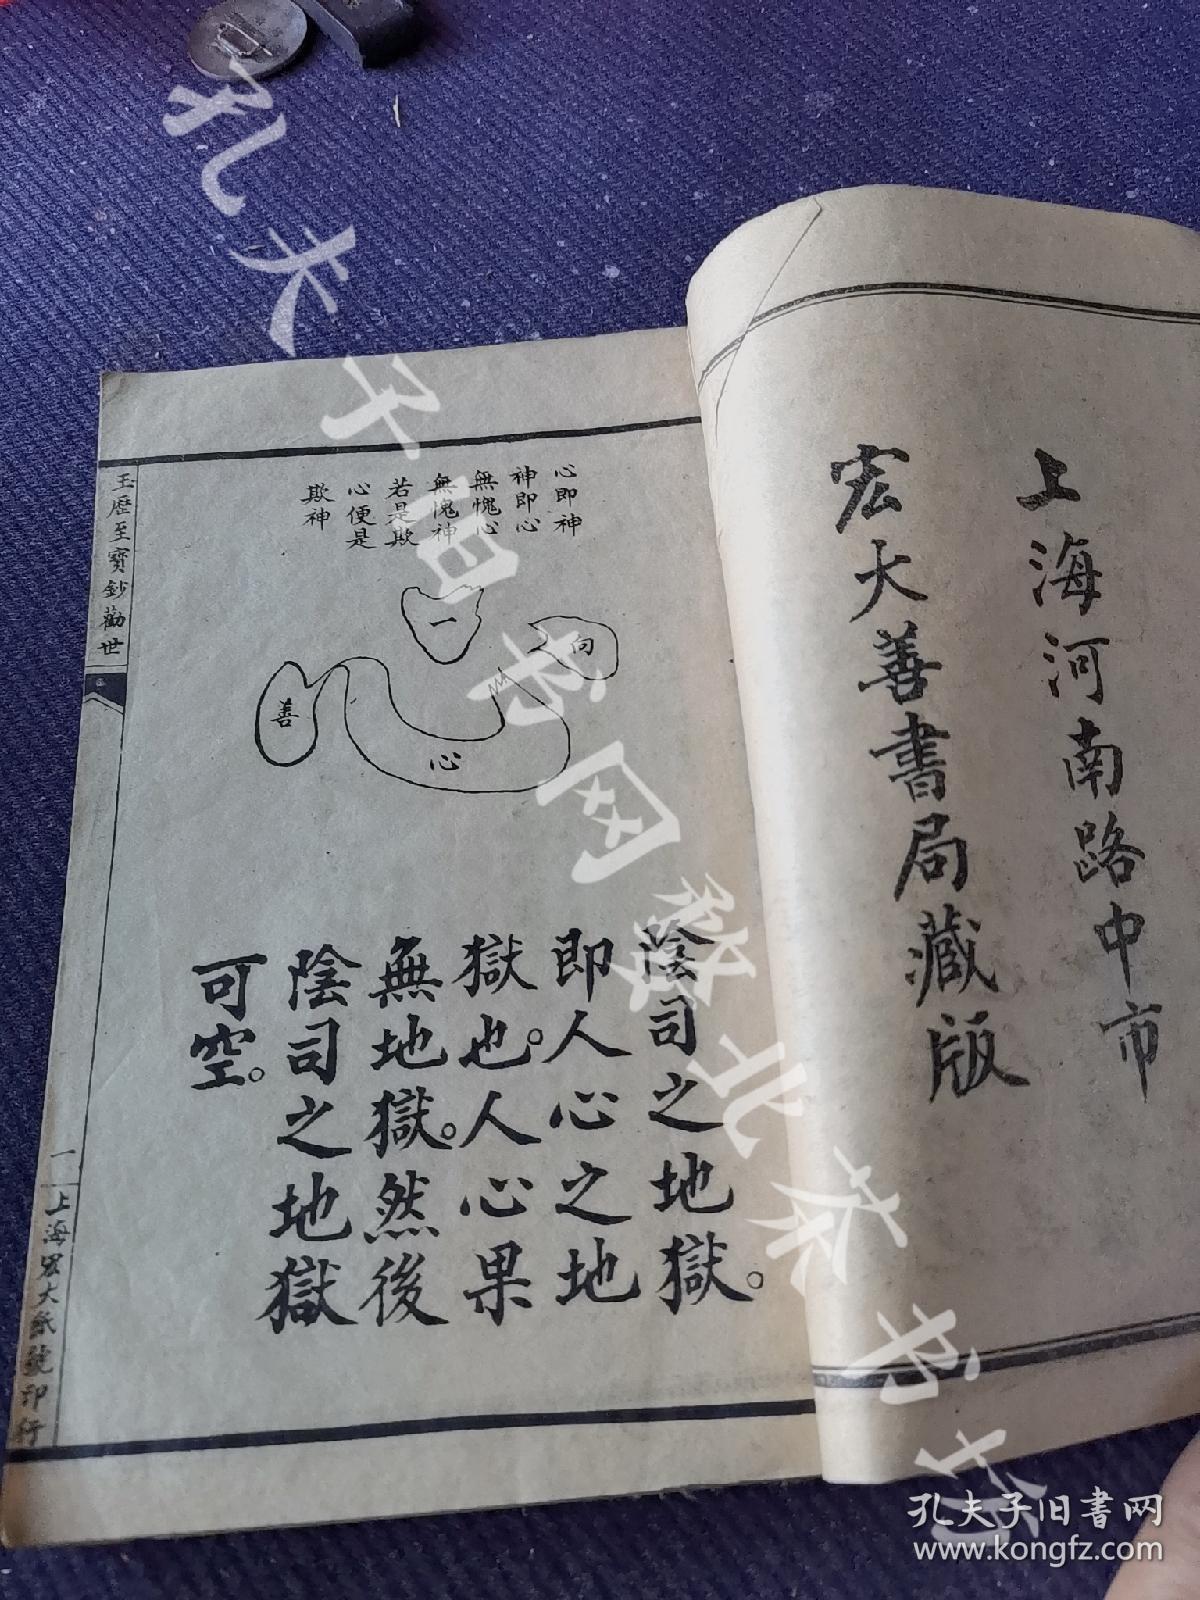 上海河南路中市
宏大善書局藏版
心即神
神即心
無愧心
無愧神
若是欺
心便是
欺神
向
一
心
善
陰司之地獄。
即人心之地
獄也。人心果
無地獄。然後
陰司之地獄
可空。
玉歷至寶鈔勸世
一
上海宏大紙號印行
孔夫子旧书网
www.kongfz.com